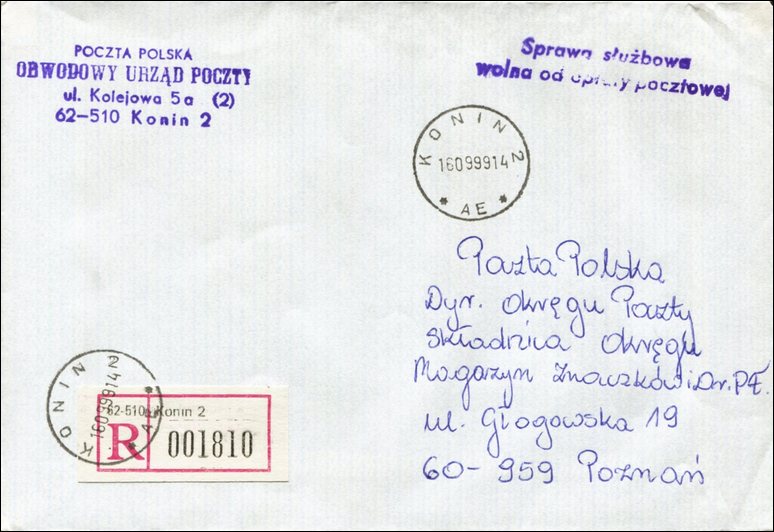 POCZTA POLSKA
OBWODOWY URZĄD POCZTY
ul. Kolejowa 5a (2)
62-510 Konin 2
Sprawa służbowa
wolna od opłaty pocztowej
KONIN 2
160999142
* AE *
Poczta Polska
Dyr. Okręgu Poczty
Składnica Okręgu
Magazyn Znaczków i Dr. PŁ
ul. Głogowska 19
60-959 Poznań
KONIN 2
16099914
* A *
62-510 Konin 2
R 001810